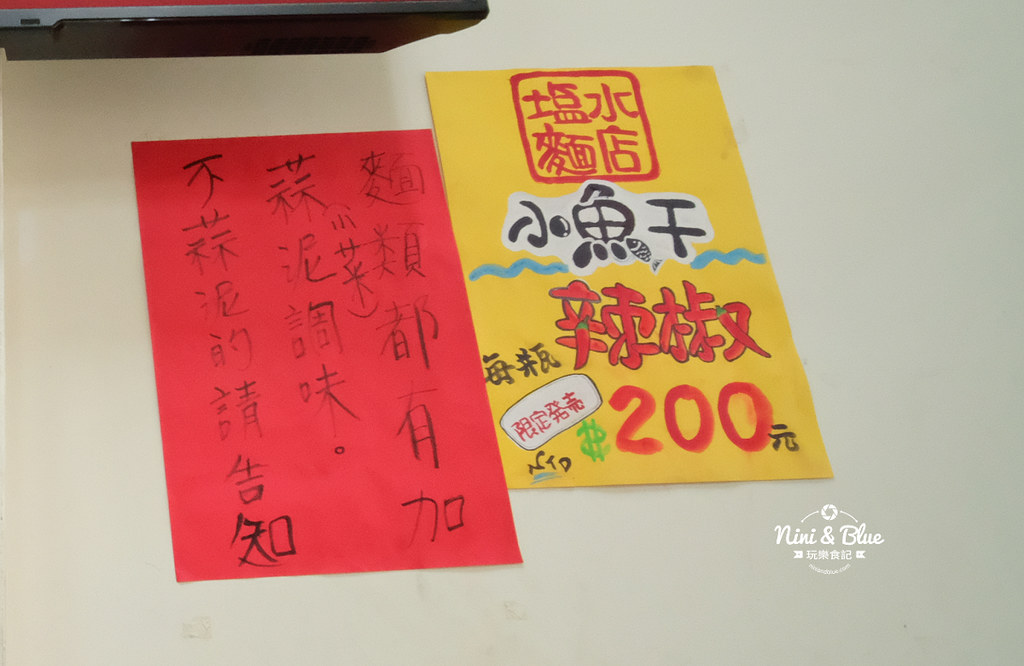 麵類都有加
(小菜)
蒜泥調味。
不蒜泥的請告知
塩水
麵店
小魚干
辣椒
每瓶
限定発売
$200元
NTD
Nini & Blue
玩樂食記
niniandblue.com